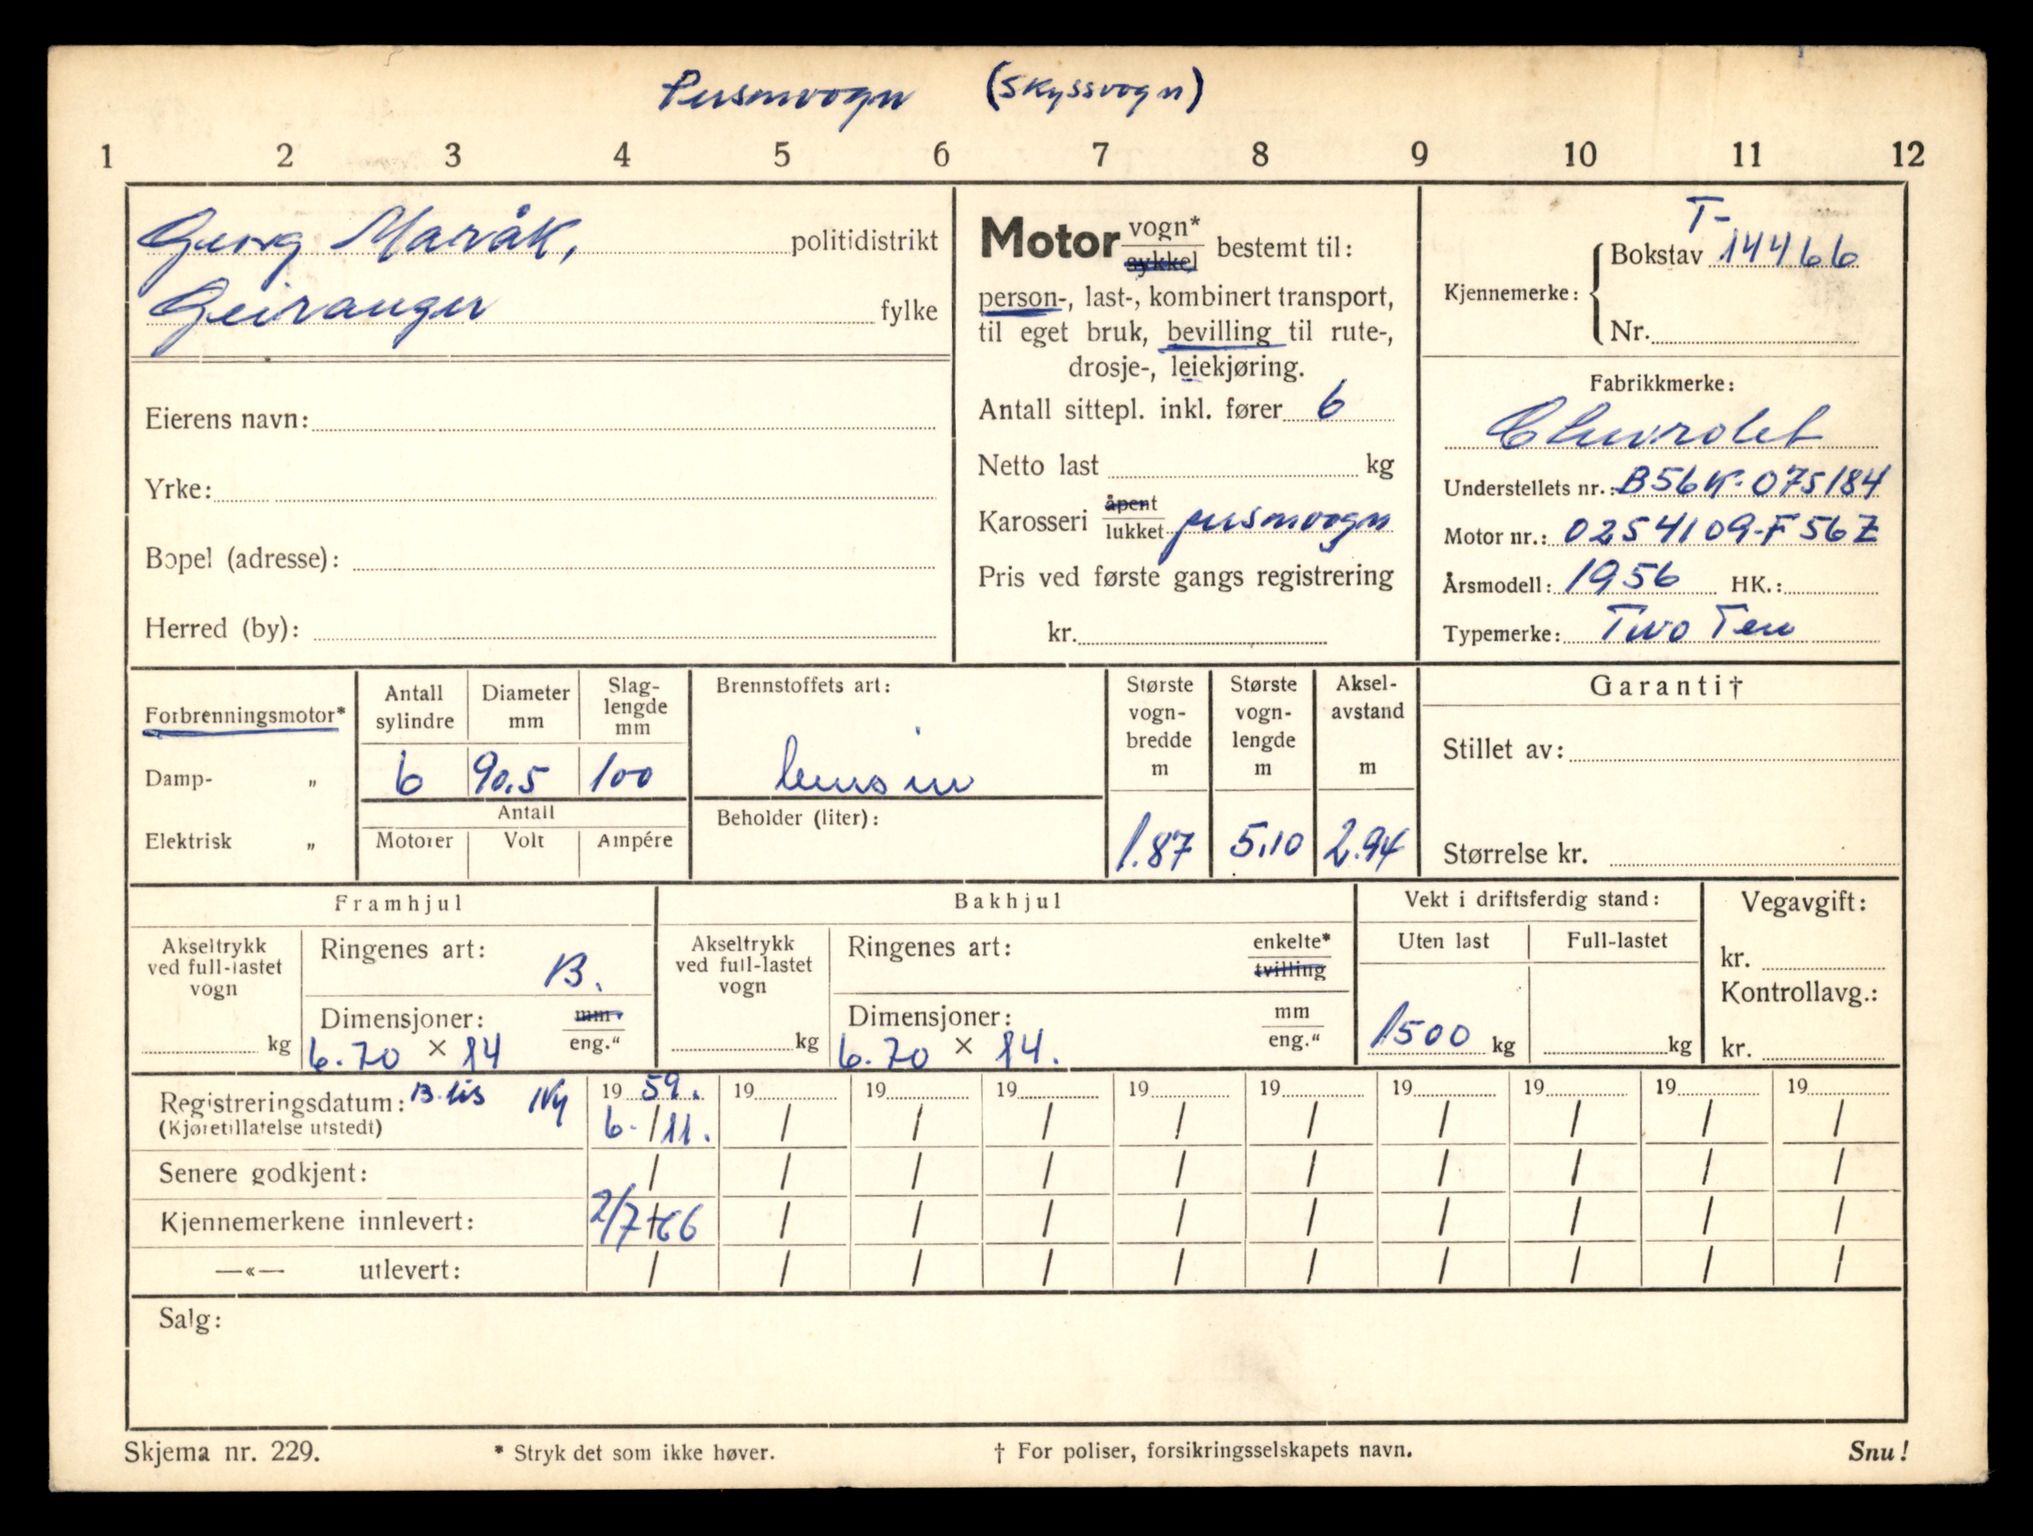 Personvogn (Skyssvogn)
1 2 3 4 5 6 7 8 9 10 11 12
Georg Maråk, politidistrikt
Geiranger fylke
Eierens navn:
Yrke:
Bopel (adresse):
Herred (by):
Motor vogn* sykkel bestemt til:
person-, last-, kombinert transport,
til eget bruk, bevilling til rute-,
drosje-, leiekjøring.
Antall sittepl. inkl. fører 6
Netto last kg
Karosseri åpent lukket personvogn
Pris ved første gangs registrering
kr.
Kjennemerke: Bokstav T-14466
Nr.
Fabrikkmerke:
Chevrolet
Understellets nr.: B56K-075184
Motor nr.: 0254109-F56Z
Årsmodell: 1956 HK.:
Typemerke: Two Ten
Forbrenningsmotor*
Damp- „
Elektrisk „
Antall sylindre Diameter mm Slaglengde mm
6 90.5 100
Antall
Motorer Volt Ampére
Brennstoffets art:
bensin
Beholder (liter):
Største vognbredde m Største vognlengde m Akselavstand m
1.87 5.10 2.94
Garanti†
Stillet av:
Størrelse kr.
Framhjul
Akseltrykk ved full-lastet vogn
kg
Ringenes art: B.
Dimensjoner: mm. eng."
6.70 × 14
Bakhjul
Akseltrykk ved full-lastet vogn
kg
Ringenes art: enkelte* tvilling
Dimensjoner: mm eng."
6.70 × 14.
Vekt i driftsferdig stand:
Uten last Full-lastet
1500 kg kg
Vegavgift:
kr.
Kontrollavg.:
kr.
Registreringsdatum: B. lis Ny 19 59. 19 19 19 19 19 19 19 19 19
(Kjøretillatelse utstedt) 6. / 11. / / / / / / / / /
Senere godkjent: / / / / / / / / / /
Kjennemerkene innlevert: 2/7-66 / / / / / / / / /
—«— utlevert: / / / / / / / / / /
Salg:
Skjema nr. 229. * Stryk det som ikke høver. † For poliser, forsikringsselskapets navn. Snu!